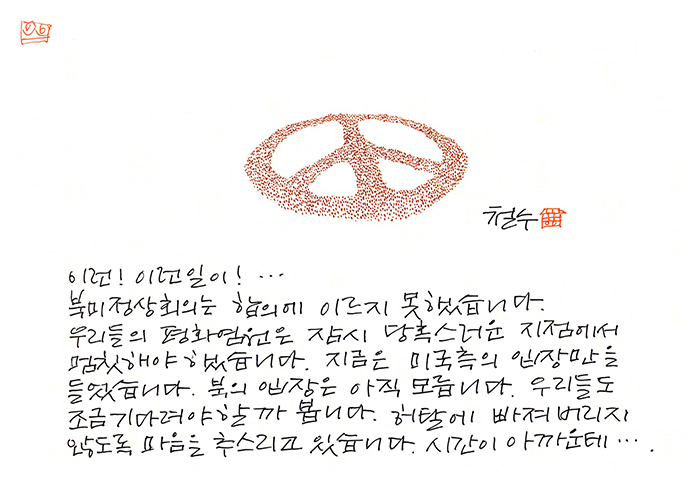 철수
이런! 이런일이! …
북미정상회의는 합의에 이르지 못했습니다.
우리들의 평화염원은 잠시 당혹스러운 지점에서
멈칫해야 했습니다. 지금은 미국측의 입장만을
들었습니다. 북의 입장은 아직 모릅니다. 우리들도
조금기다려야할까 봅니다. 허탈에 빠져버리지
않도록 마음을 추스리고 있습니다. 시간이 아까운데 ….